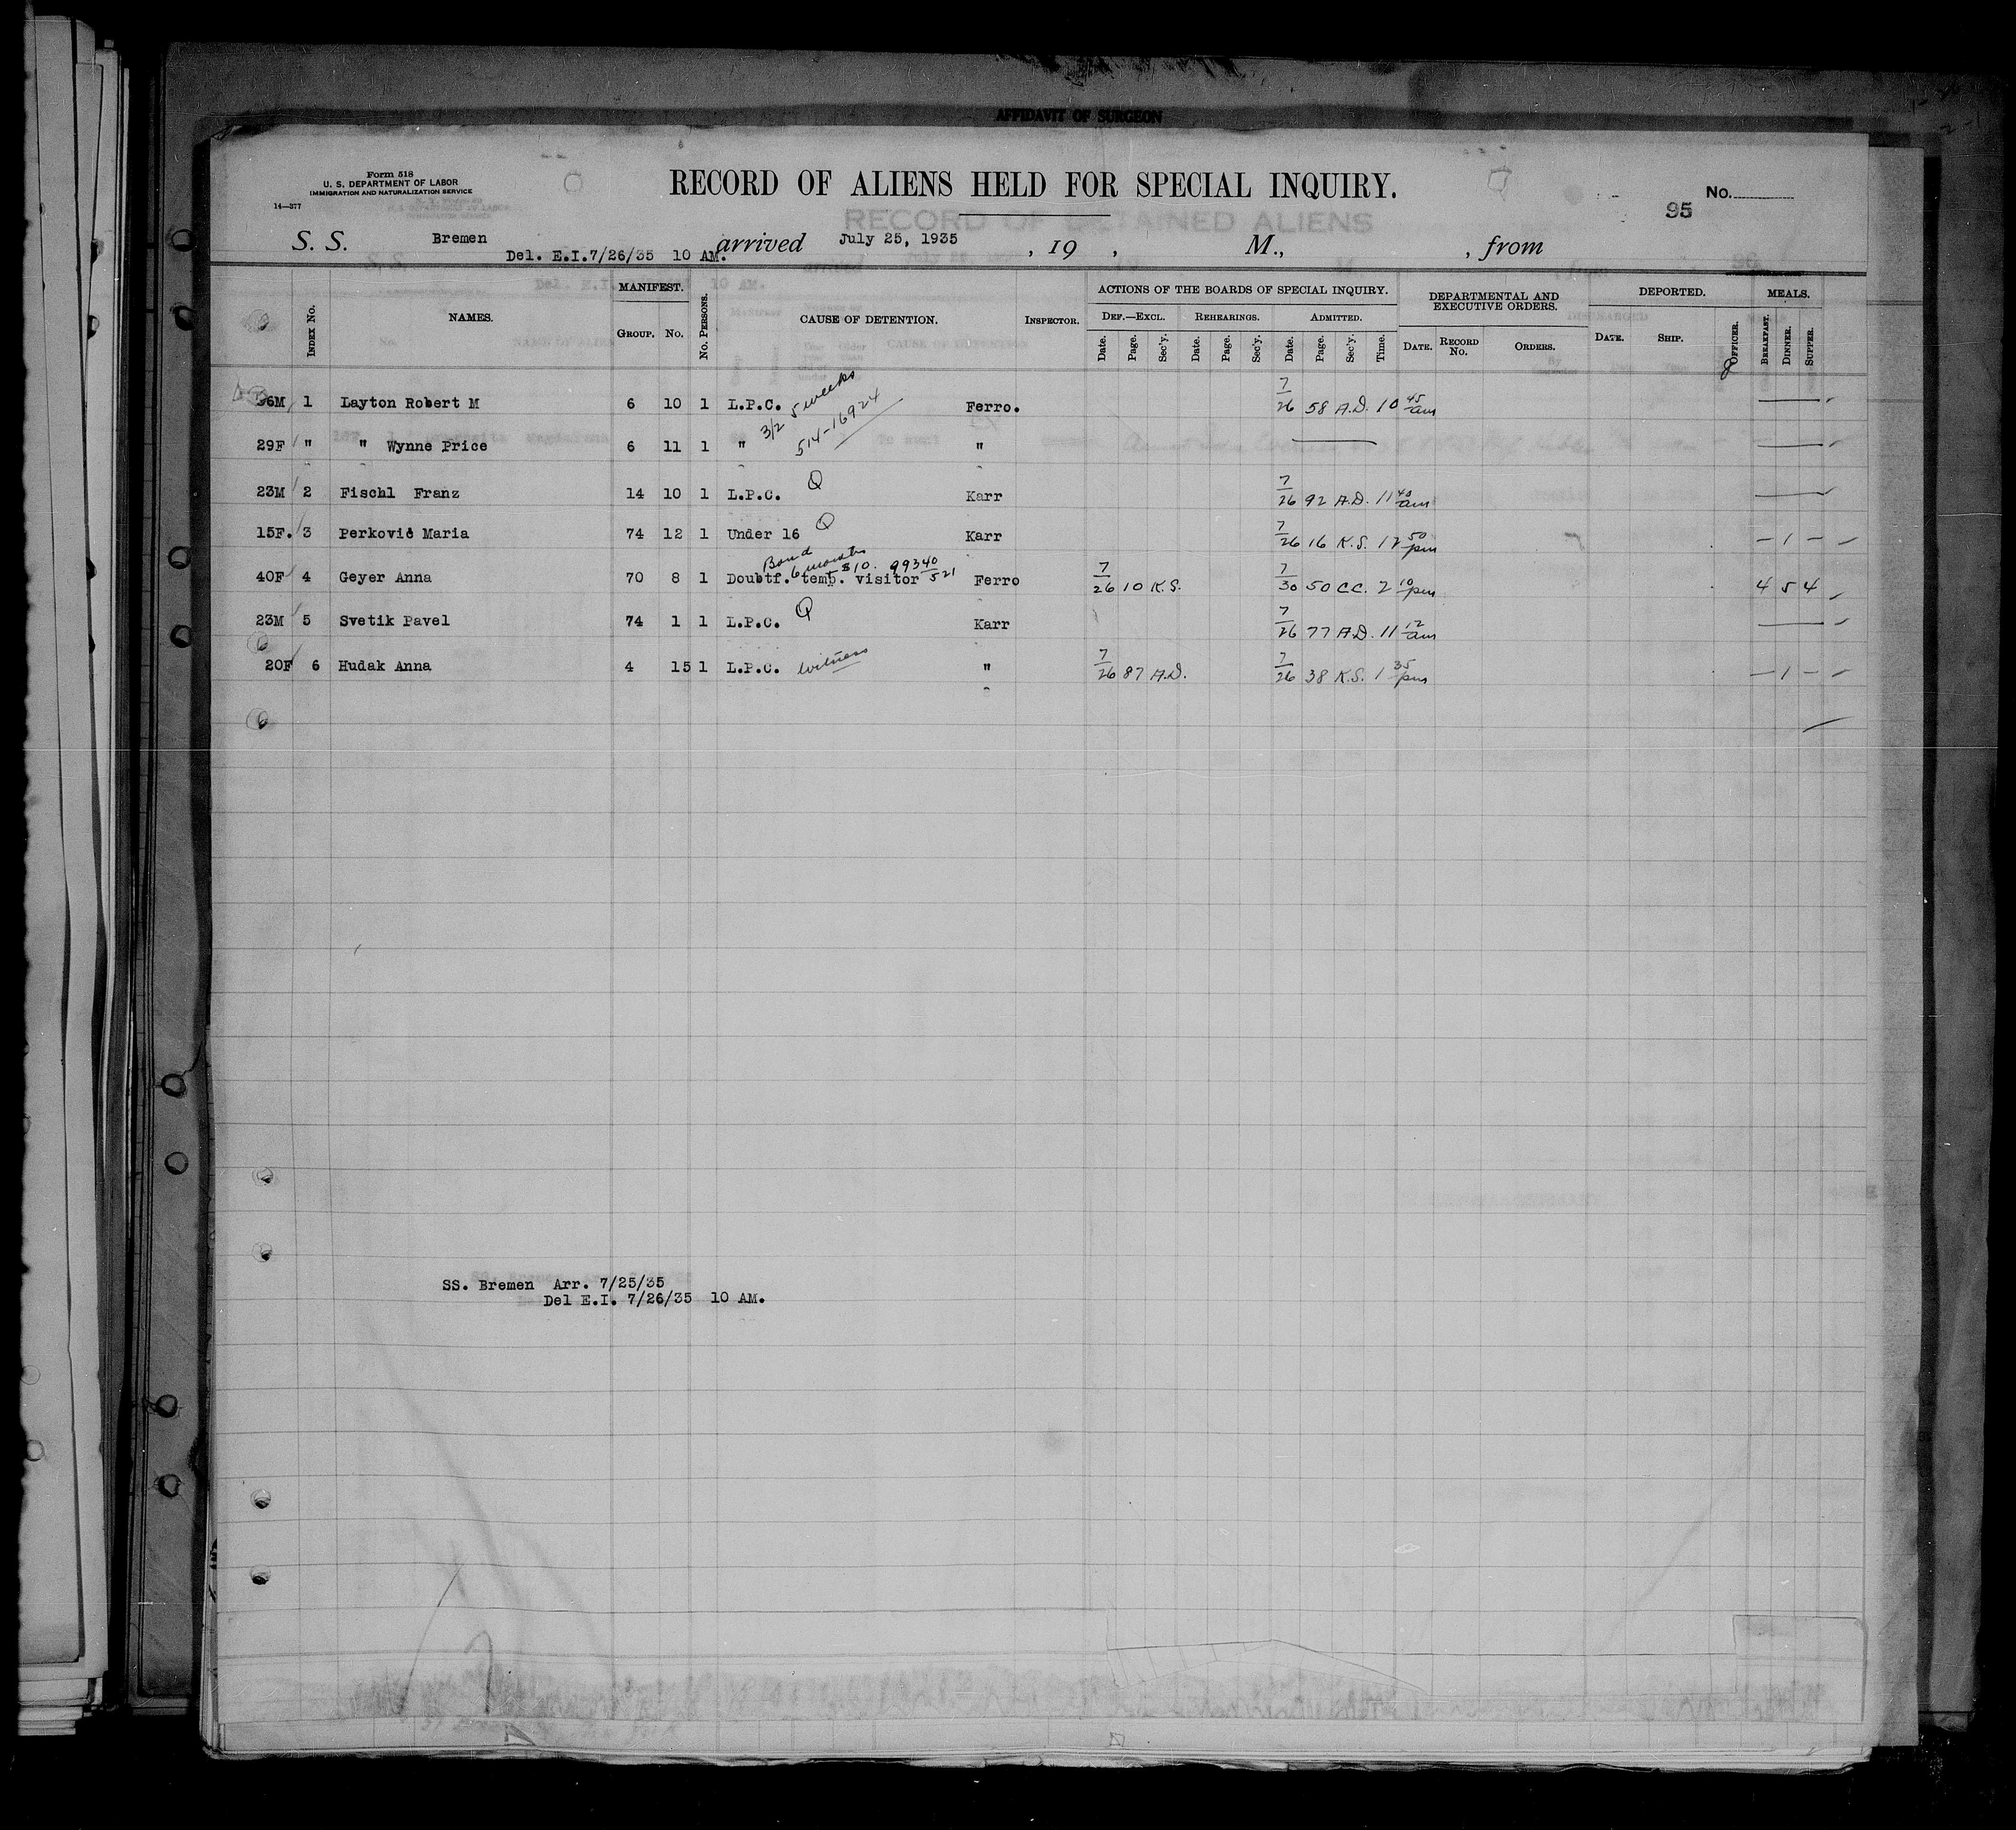 AFFIDAVIT OF SURGEON
Form 518
U. S. DEPARTMENT OF LABOR
IMMIGRATION AND NATURALIZATION SERVICE
14—377
RECORD OF ALIENS HELD FOR SPECIAL INQUIRY.
No.
95
RECORD OF DETAINED ALIENS
S. S. Bremen arrived July 25, 1935, 19 , M., , from
Del. E.I.7/26/35 10 AM.
INDEX No. NAMES. MANIFEST. GROUP. No. No. PERSONS. CAUSE OF DETENTION. INSPECTOR. ACTIONS OF THE BOARDS OF SPECIAL INQUIRY. DEF.—EXCL. Date. Page. Sec'y. REHEARINGS. Date. Page. Sec'y. ADMITTED. Date. Page. Sec'y. Time. DEPARTMENTAL AND EXECUTIVE ORDERS. DATE. RECORD No. ORDERS. DEPORTED. DATE. SHIP. OFFICER. MEALS. BREAKFAST. DINNER. SUPPER.
36M 1 Layton Robert M 6 10 1 L.P.C. 3/2 5 weeks Ferro. 7/26 58 A.D. 10 45 am
29F " " Wynne Price 6 11 1 " 514-16924 "
23M 2 Fischl Franz 14 10 1 L.P.C. Q Karr 7/26 92 A.D. 11 40 am
15F. 3 Perković Maria 74 12 1 Under 16 Q Karr 7/26 16 K.S. 12 50 pm – 1 –
Bond 6 months $10. 99340/521
40F 4 Geyer Anna 70 8 1 Doubtf. temp. visitor Ferro 7/26 10 K.S. 7/30 50 C.C. 2 10 pm 4 5 4
23M 5 Svetik Pavel 74 1 1 L.P.C. Q Karr 7/26 77 A.D. 11 12 am
20F 6 Hudak Anna 4 15 1 L.P.C. Witness " 7/26 87 A.D. 7/26 38 K.S. 1 35 pm – 1 –
SS. Bremen Arr. 7/25/35
Del E.I. 7/26/35 10 AM.